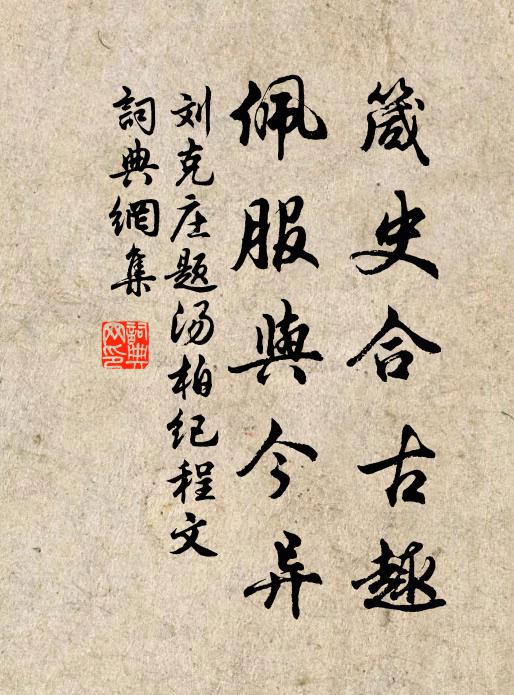 箴史合古趣
佩服與今异
刘克庄题汤柏纪程文
詞典網集
詞典網印